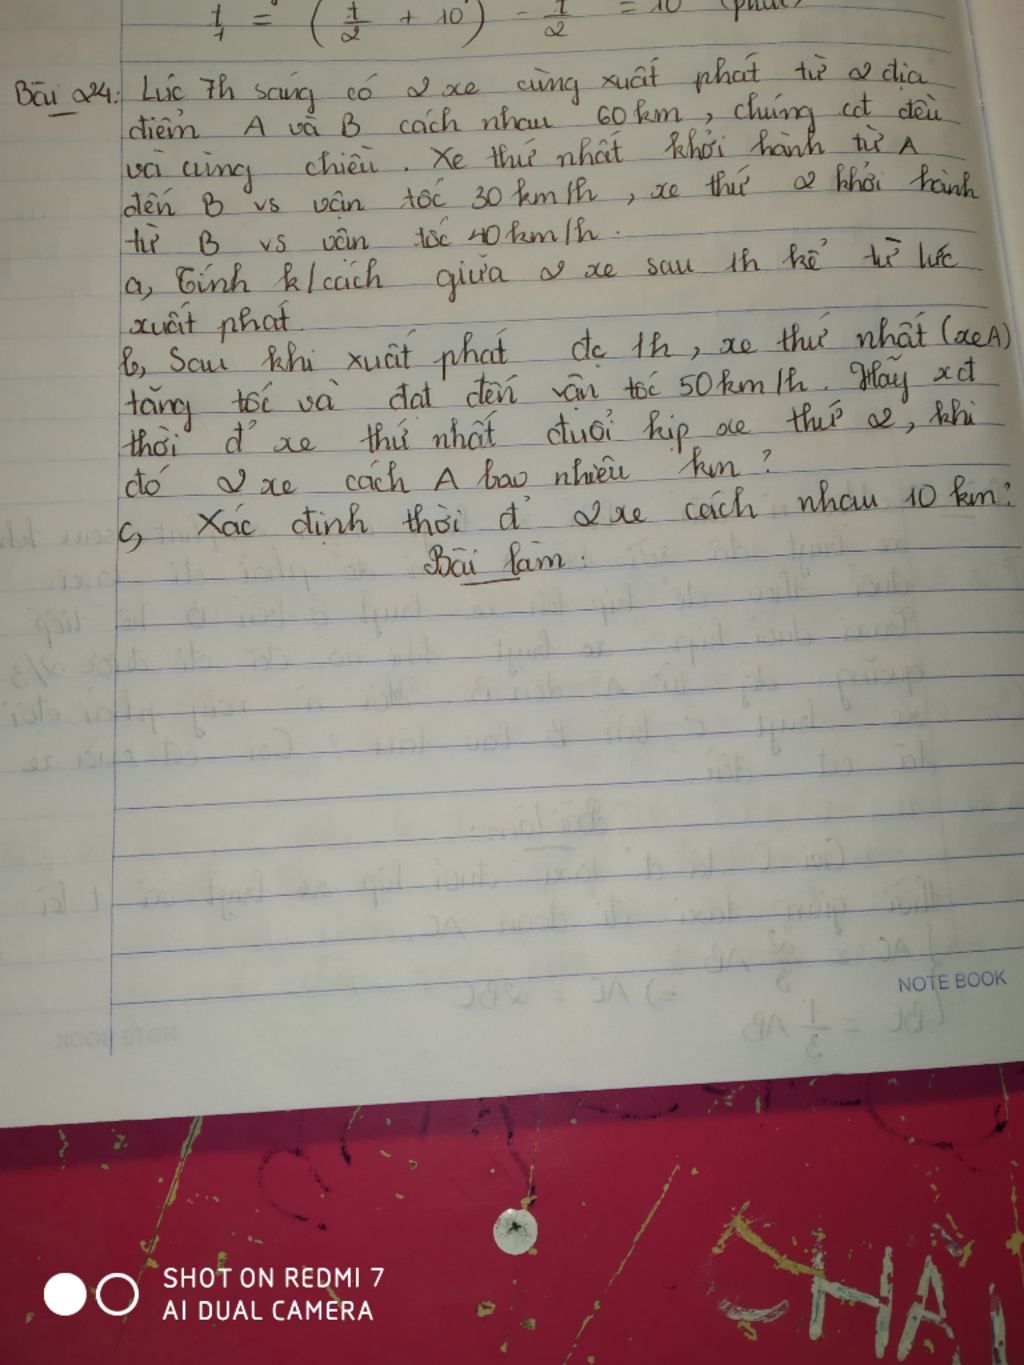 t₁ = (t/2 + 10) - t/2 = 10 (phút)
Bài 24: Lúc 7h sáng có 2 xe cùng xuất phát từ 2 địa
điểm A và B cách nhau 60 km, chúng cđ đều
và cùng chiều. Xe thứ nhất khởi hành từ A
đến B vs vận tốc 30 km/h, xe thứ 2 khởi hành
từ B vs vận tốc 40 km/h.
a, Tính k/cách giữa 2 xe sau 1h kể từ lúc
xuất phát.
b, Sau khi xuất phát đc 1h, xe thứ nhất (xe A)
tăng tốc và đạt đến vận tốc 50 km/h. Hãy xđ
thời đ' xe thứ nhất đuổi kịp xe thứ 2, khi
đó 2 xe cách A bao nhiêu km?
c, Xác định thời đ' 2 xe cách nhau 10 km?
Bài làm:
NOTE BOOK
SHOT ON REDMI 7
AI DUAL CAMERA
CHA